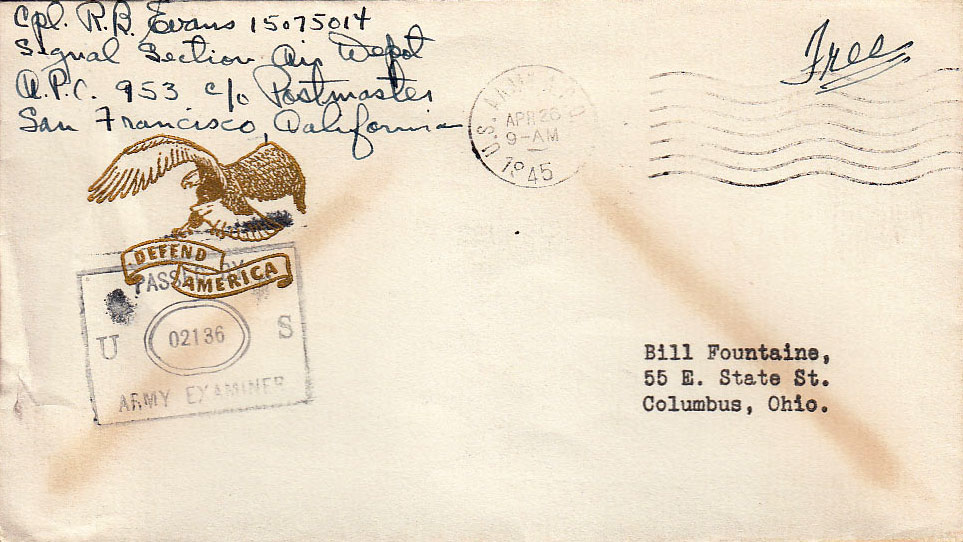 Cpl. R.B. Evans 15075014
Signal Section Air Depot
A.P.O. 953 c/o Postmaster
San Francisco, California
Free
U.S. ARMY A.P.O.
APR 26
9-AM
1945
DEFEND
AMERICA
PASSED BY
U 02136 S
ARMY EXAMINER
Bill Fountaine,
55 E. State St.
Columbus, Ohio.